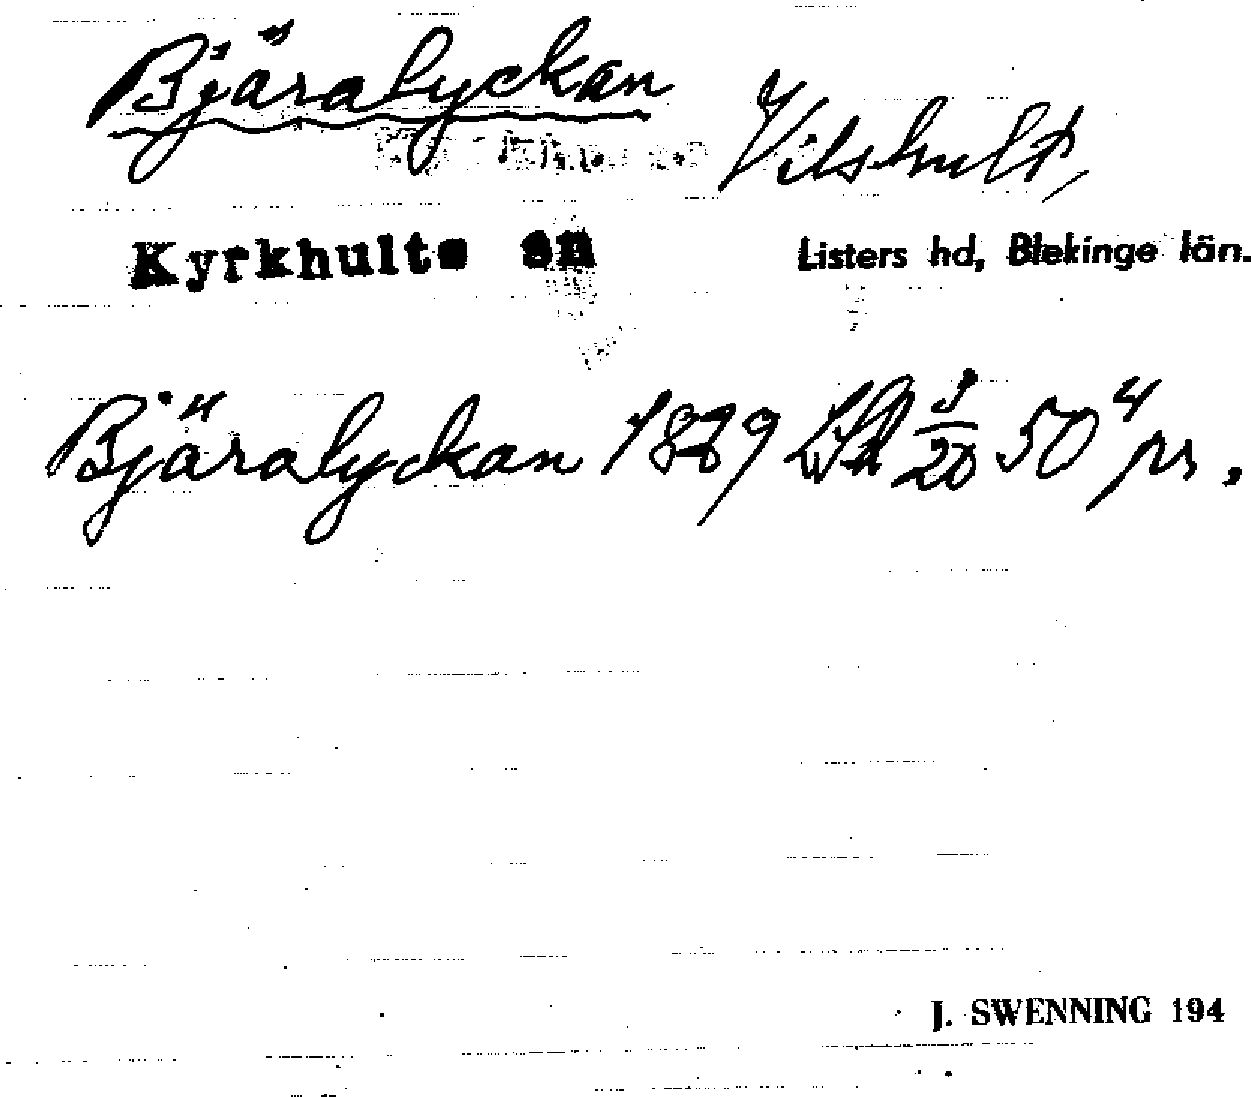 Bjäralyckan Vilshult,
Kyrkhults sn Listers hd, Blekinge län.
Bjäralyckan 1889 LSA 9/20 50 4 prs.
J. SWENNING 194